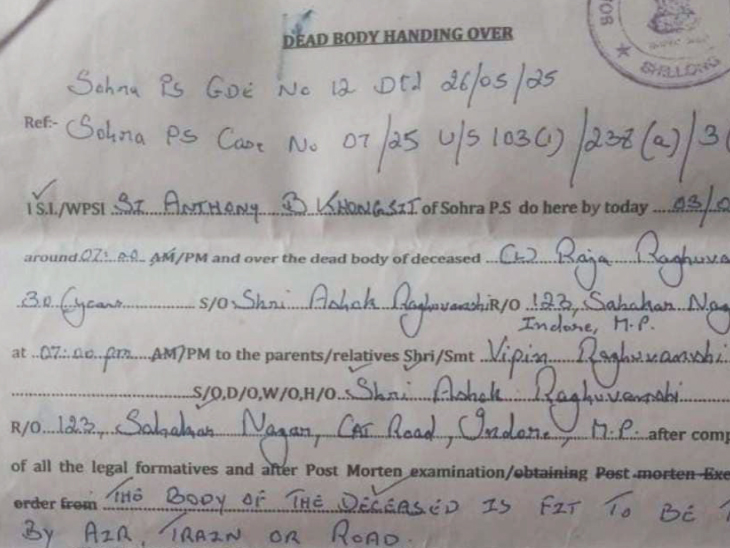 DEAD BODY HANDING OVER
SHILLONG
Sohra PS GDE No 12 Dtd 26/05/25
Ref:- Sohra PS Case No 07/25 U/S 103(1)/238(a)/3(
I S.I./WPSI SI ANTHONY B KHONGSIT of Sohra P.S do here by today 03/0
around 07:00 AM/PM and over the dead body of deceased (L) Raja Raghuva
30 (years S/O Shri Ashok Raghuvanshi R/O 123, Sahakar Nag
Indore, M.P.
at 07:00 pm AM/PM to the parents/relatives Shri/Smt Vipin Raghuvanshi
S/O,D/O,W/O,H/O Shri Ashok Raghuvanshi
R/O 123, Sahakar Nagar, CAT Road, Indore, M.P. after comp
of all the legal formatives and after Post Morten examination/obtaining Post-morten Exe
order from THE BODY OF THE DECEASED IS FIT TO BE T
BY AIR, TRAIN OR ROAD.